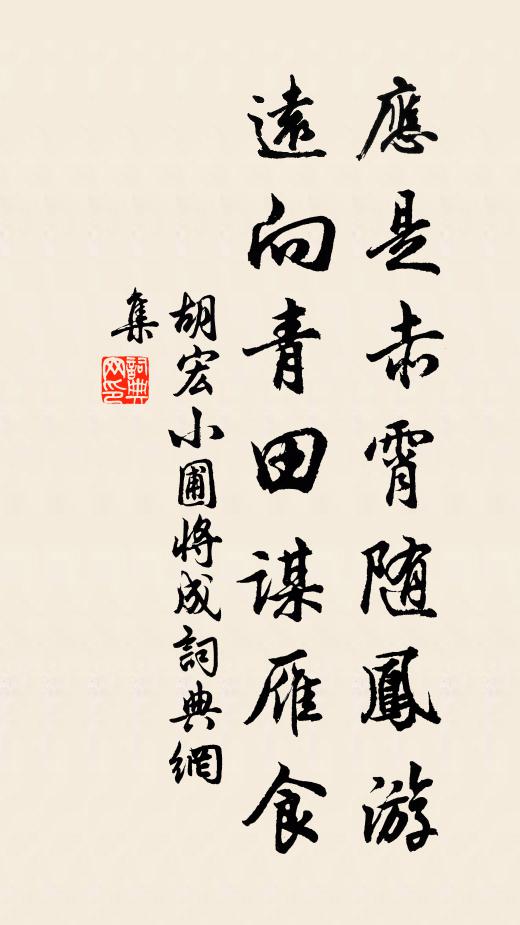 應是赤霄随鳳游
遠向青田謀雁食
胡宏小圃将成詞典網
集
詞典
网印